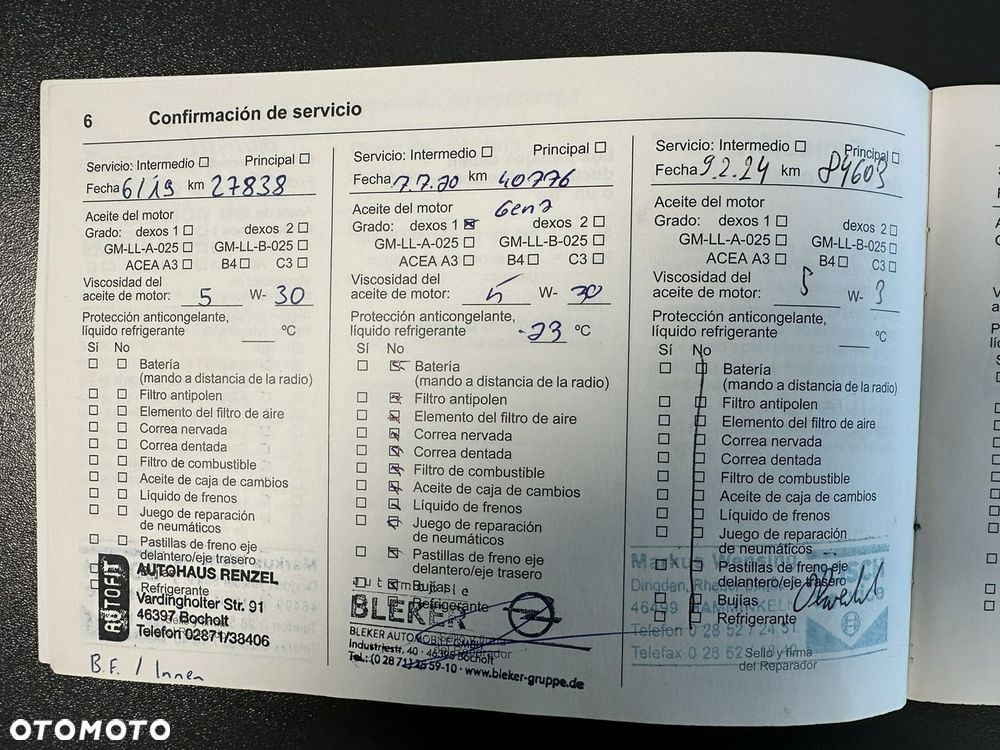 6 Confirmación de servicio
Servicio: Intermedio Principal
Fecha 6/19 km 27838
Aceite del motor
Grado: dexos 1 dexos 2
GM-LL-A-025 GM-LL-B-025
ACEA A3 B4 C3
Viscosidad del
aceite de motor: 5 W- 30
Protección anticongelante,
líquido refrigerante ºC
Sí No
Batería
(mando a distancia de la radio)
Filtro antipolen
Elemento del filtro de aire
Correa nervada
Correa dentada
Filtro de combustible
Aceite de caja de cambios
Líquido de frenos
Juego de reparación
de neumáticos
Pastillas de freno eje
delantero/eje trasero
Refrigerante
AUTOFIT
AUTOHAUS RENZEL
Vardingholter Str. 91
46397 Bocholt
Telefon 02871/38406
B.F. / Innen
Servicio: Intermedio Principal
Fecha 7.7.20 km 40776
Aceite del motor Gen 2
Grado: dexos 1 dexos 2
GM-LL-A-025 GM-LL-B-025
ACEA A3 B4 C3
Viscosidad del
aceite de motor: 5 W- 30
Protección anticongelante,
líquido refrigerante -23 ºC
Sí No
Batería
(mando a distancia de la radio)
Filtro antipolen
Elemento del filtro de aire
Correa nervada
Correa dentada
Filtro de combustible
Aceite de caja de cambios
Líquido de frenos
Juego de reparación
de neumáticos
Pastillas de freno eje
delantero/eje trasero
Bujías
Refrigerante
BLEKER
Industriestr. 40 · 46395 Bocholt
Tel.: (0 28 71) 25 59-10 · www.bleker-gruppe.de
Servicio: Intermedio Principal
Fecha 9.2.24 km 84603
Aceite del motor
Grado: dexos 1 dexos 2
GM-LL-A-025 GM-LL-B-025
ACEA A3 B4 C3
Viscosidad del
aceite de motor: 5 W- 3
Protección anticongelante,
líquido refrigerante ºC
Sí No
Batería
(mando a distancia de la radio)
Filtro antipolen
Elemento del filtro de aire
Correa nervada
Correa dentada
Filtro de combustible
Aceite de caja de cambios
Líquido de frenos
Juego de reparación
de neumáticos
Pastillas de freno eje
delantero/eje trasero
Bujías
Refrigerante
Sello y firma
del Reparador
Markus
Dingden,
46499
Telefon 0 28 52 / 24 51
Telefax 0 28 52
OTOMOTO